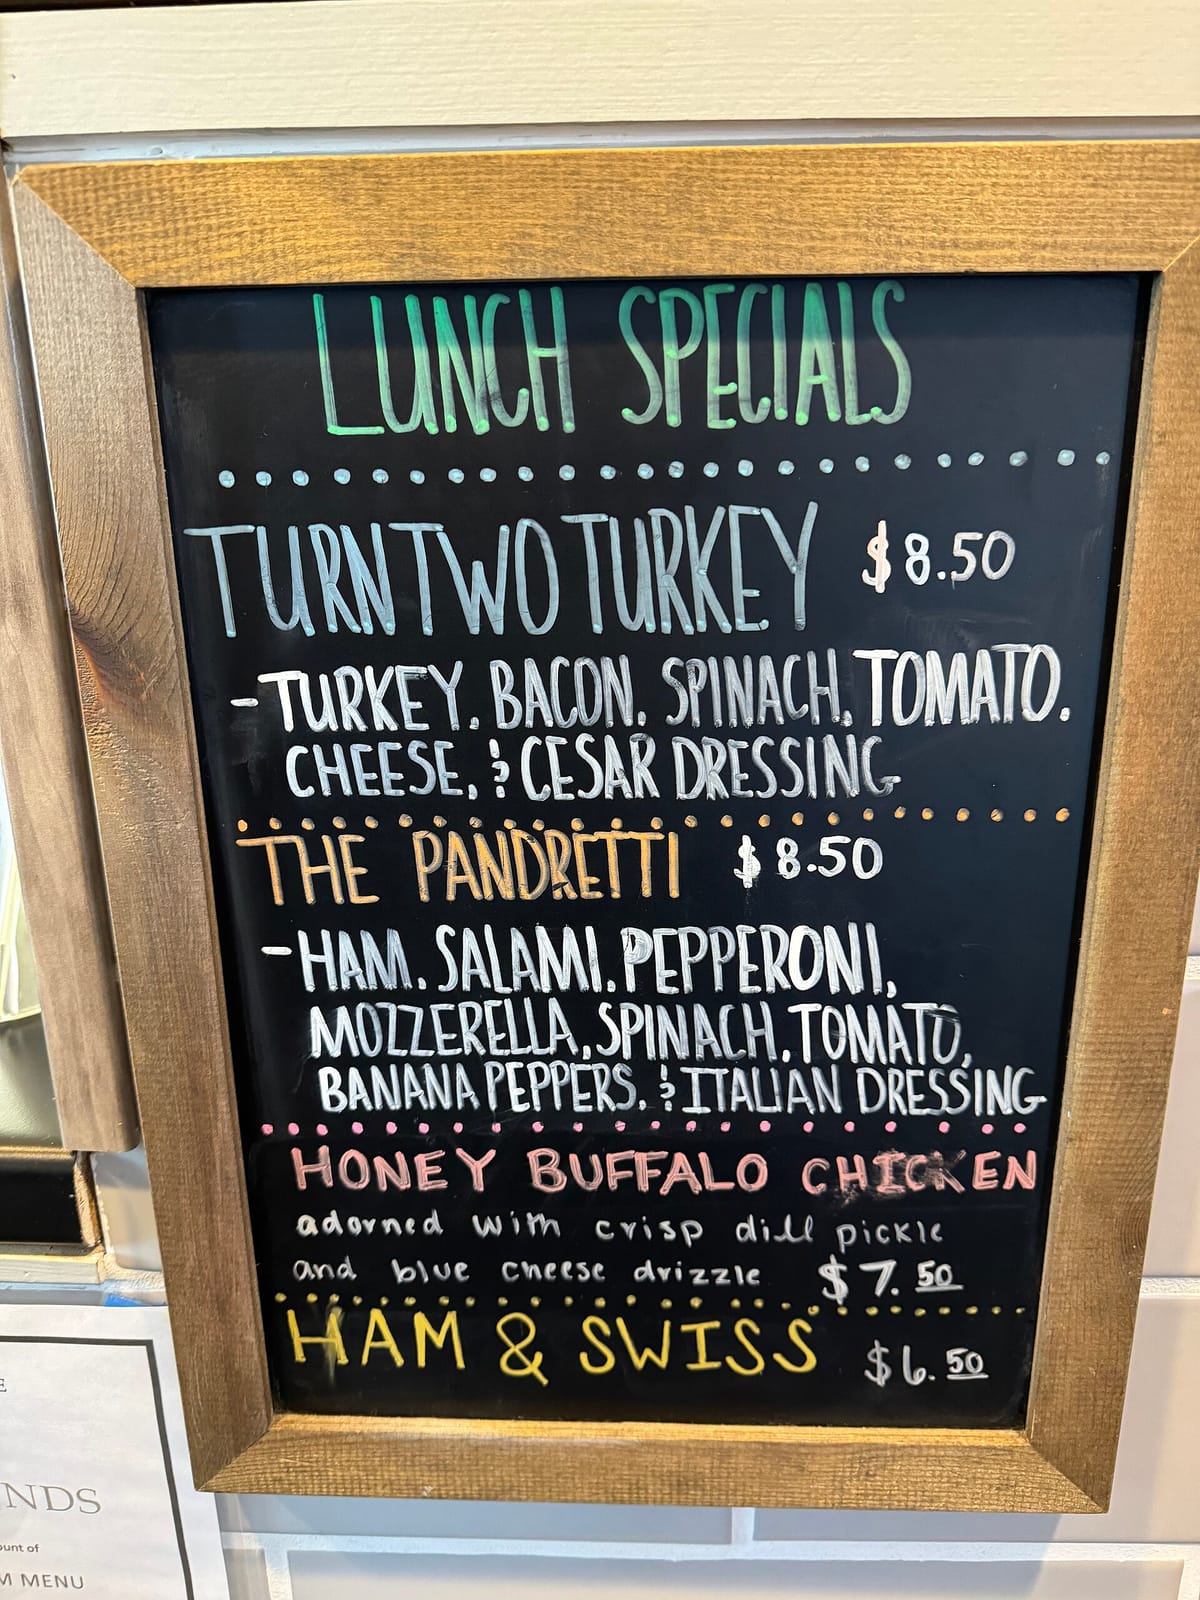 LUNCH SPECIALS
TURN TWO TURKEY $8.50
-TURKEY, BACON, SPINACH, TOMATO,
CHEESE, & CESAR DRESSING
THE PANDRETTI $8.50
-HAM, SALAMI, PEPPERONI,
MOZZERELLA, SPINACH, TOMATO,
BANANA PEPPERS, & ITALIAN DRESSING
HONEY BUFFALO CHICKEN
adorned with crisp dill pickle
and blue cheese drizzle $7.50
HAM & SWISS $6.50
E
NDS
ount of
M MENU